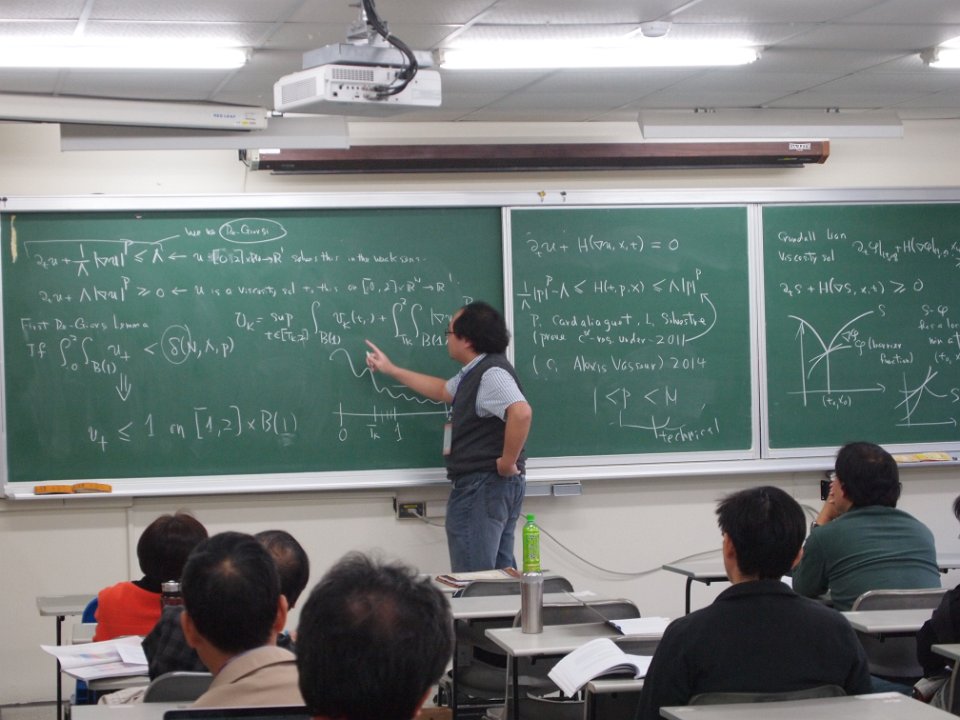 We use De-Giorgi
∂ₜu + 1/Λ |∇u|^p ≤ Λ ← u = [0,2]×ℝᴺ → ℝ¹ solves this in the weak sense.
∂ₜu + Λ|∇u|^p ≥ 0 ← u is a viscosity sol to this on [0,2]×ℝᴺ → ℝ¹
First De-Giorgi Lemma
If ∫₀² ∫_{B(1)} u₊ < δ(N, Λ, p)
⇓
u₊ ≤ 1 on [1,2]×B(1)
U_K = sup t∈[T_K,2] ∫_{B(1)} u_K(t,·) + ∫_{T_K}^2 ∫_{B(1)} |∇u
0 T_K 1
∂ₜu + H(∇u, x, t) = 0
1/Λ |p|^p - Λ ≤ H(t, p, x) ≤ Λ|p|^p
P. Cardaliaguet, L. Silvestre
(prove C^α-reg. under 2011
(C, Alexis Vasseur) 2014
1 < p < N
technical
Crandall Lion
Viscosity sol
∂ₜS + H(∇S, x, t) ≥ 0
S
φ (barrier function)
(t₀, x₀)
S-φ